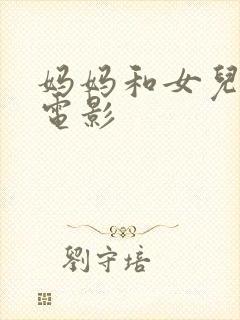 妈妈和女兒
電影
劉守培